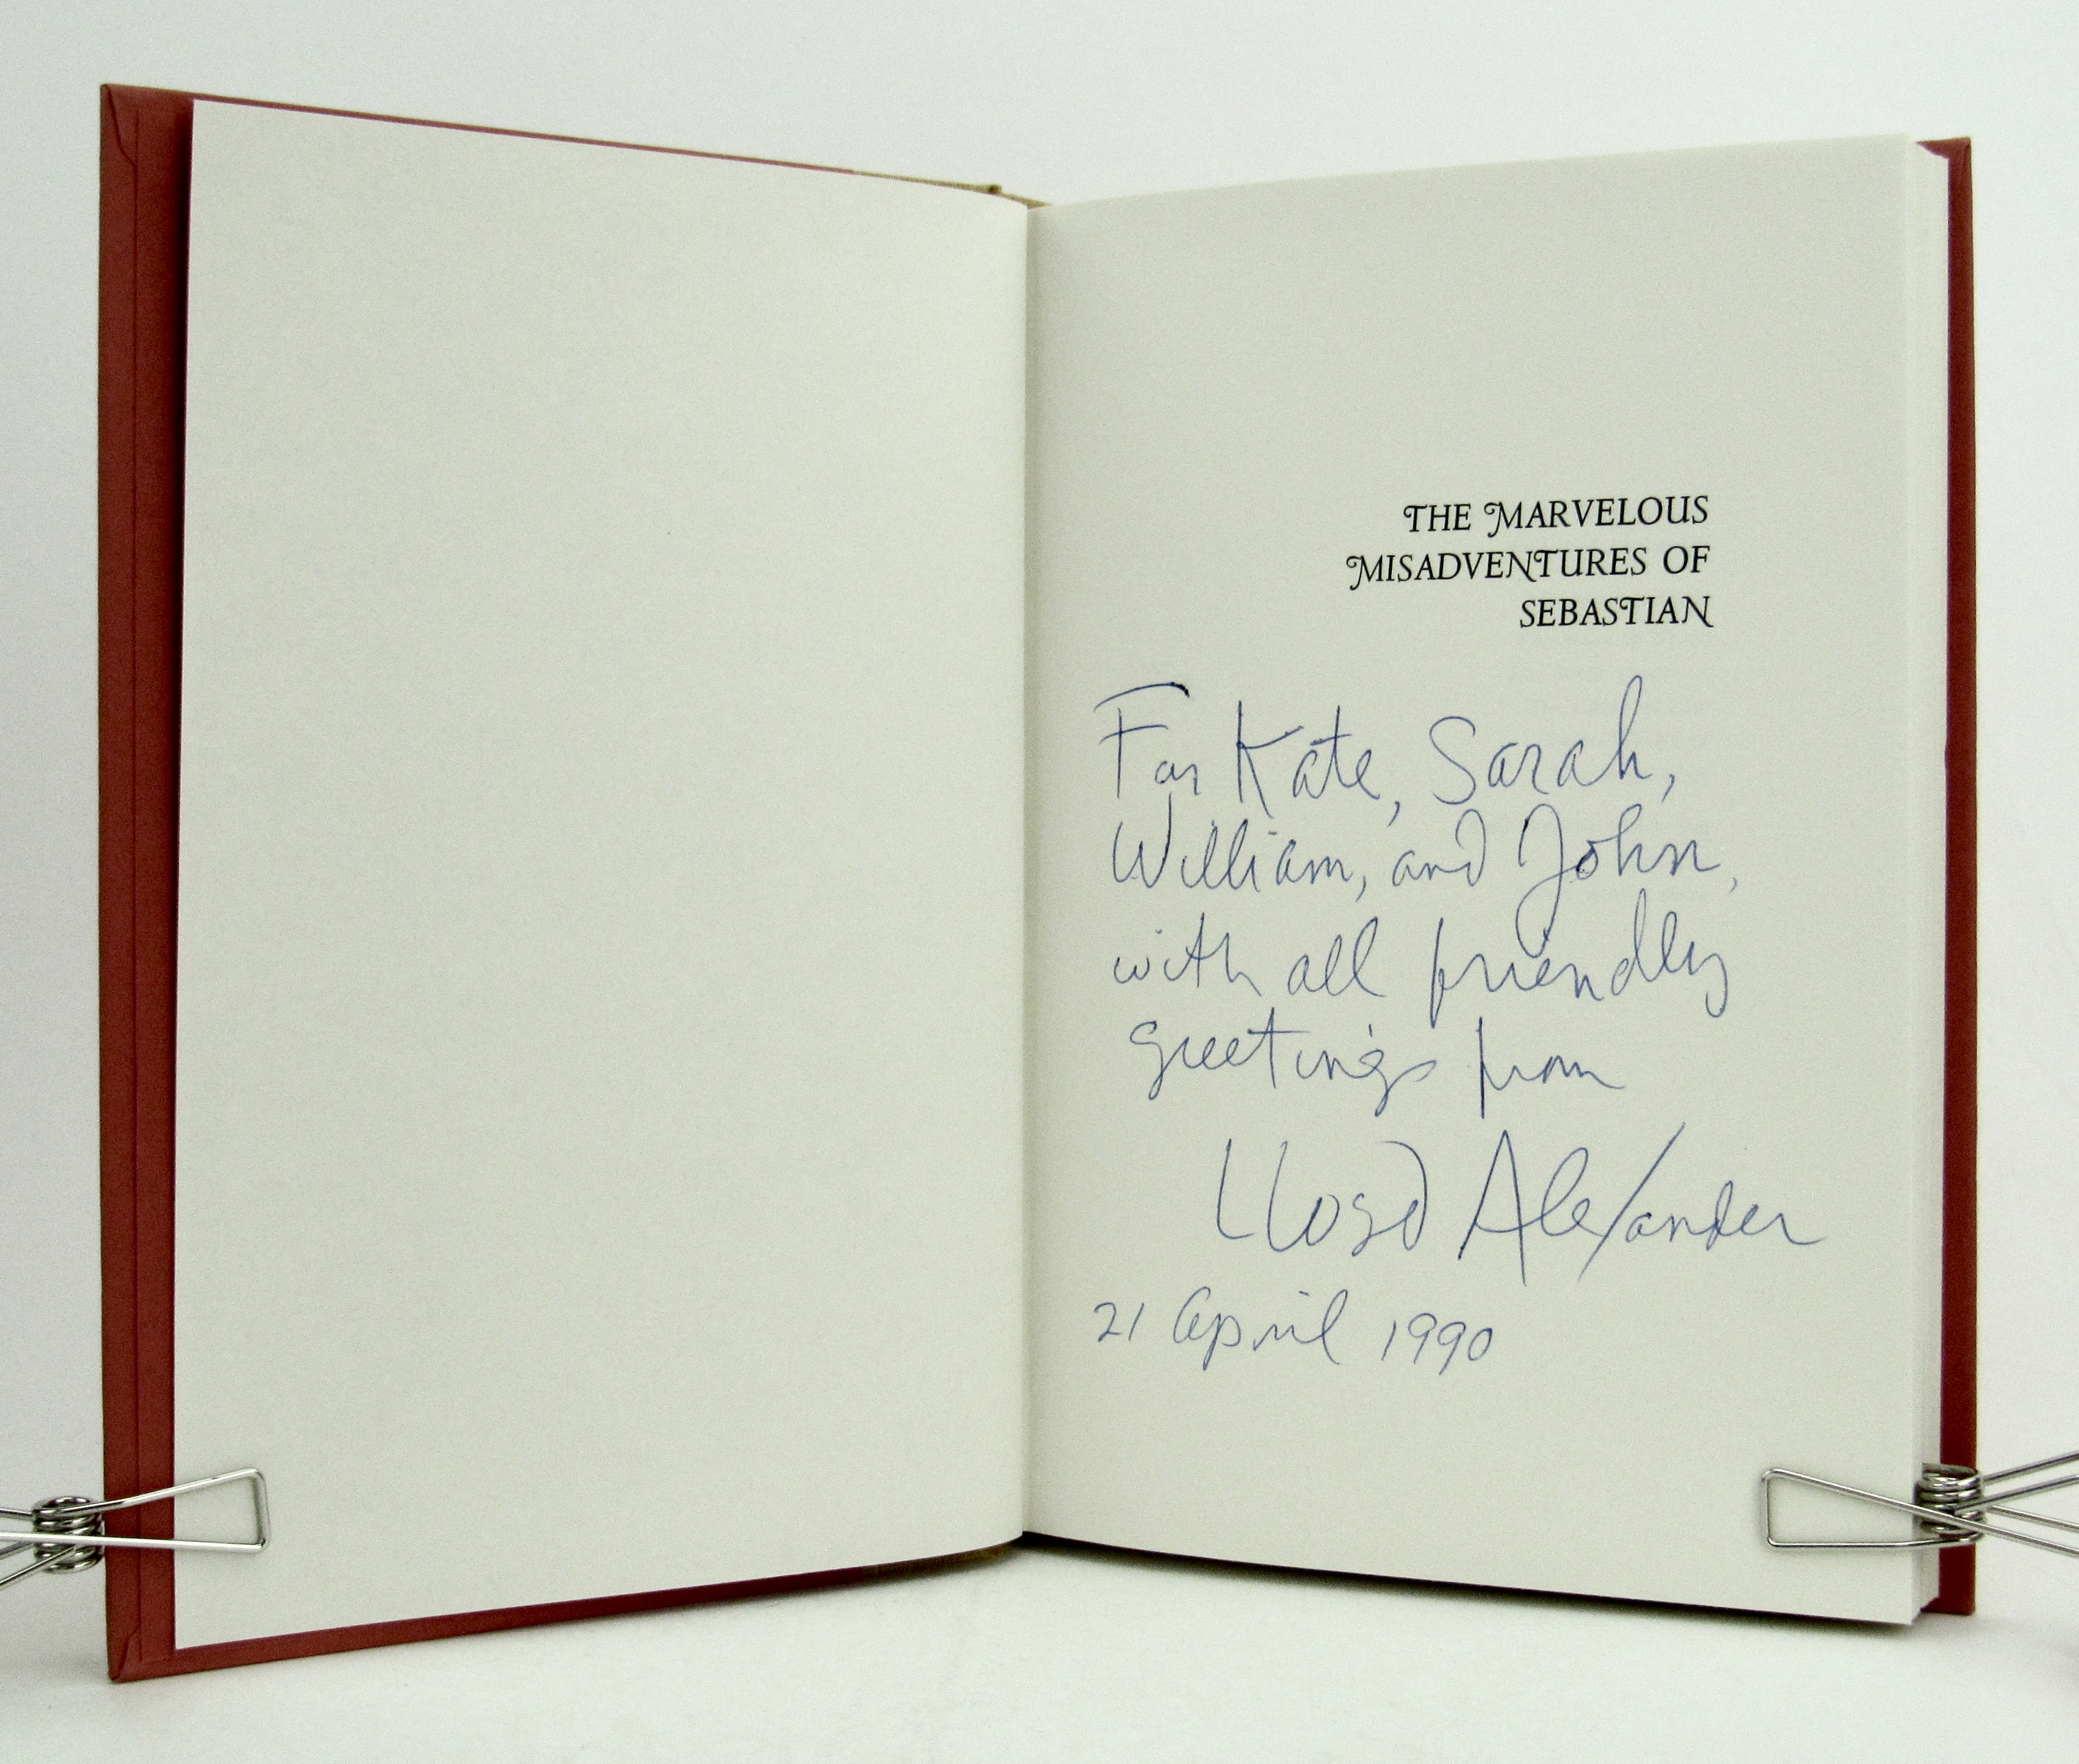 THE MARVELOUS
MISADVENTURES OF
SEBASTIAN
For Kate, Sarah,
William, and John,
with all friendly
greetings from
Lloyd Alexander
21 April 1990